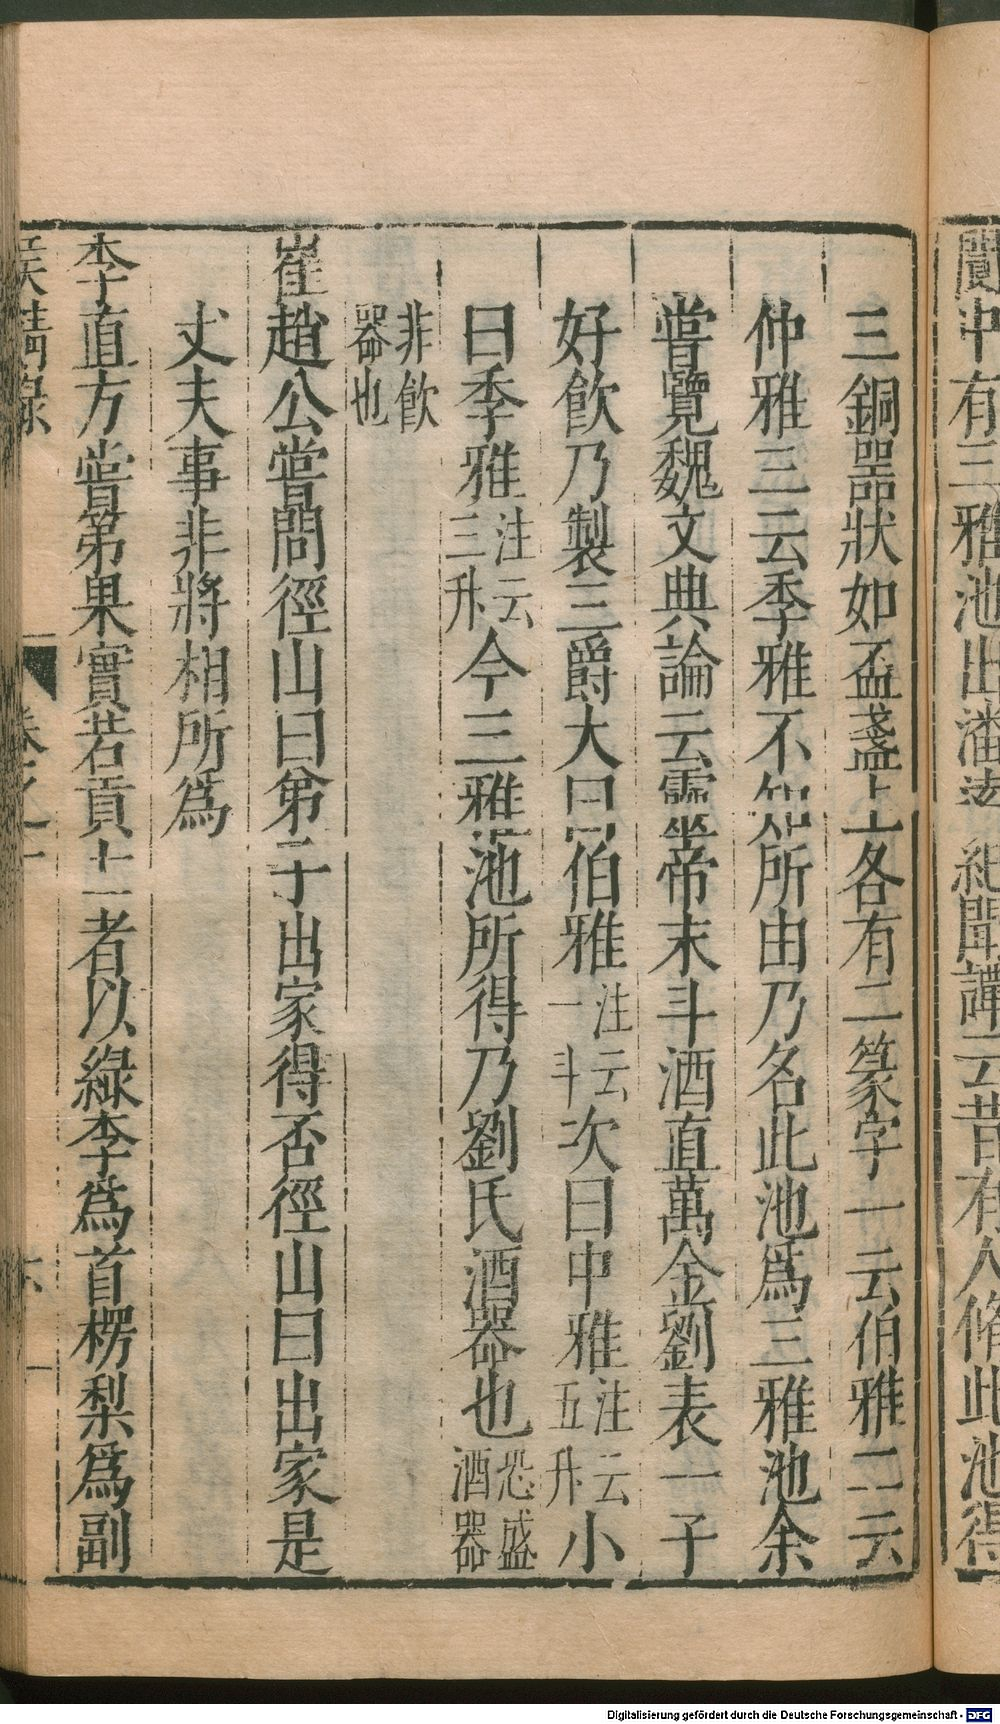 閬中有三雅池出潘遠紀聞譚云昔有人脩此池得
三銅器狀如盃盞上各有二篆字一云伯雅二云
仲雅三云季雅不知所由乃名此池爲三雅池余
嘗覽魏文典論云靈帝末斗酒直萬金劉表一子
好飲乃製三爵大曰伯雅注云一斗次曰中雅注云五升小
曰季雅注云三升今三雅池所得乃劉氏酒器也恐盛酒器
非飲器也
崔趙公嘗問徑山曰弟子出家得否徑山曰出家是
丈夫事非將相所爲
李直方嘗第果實若貢士者以綠李爲首楞梨爲副
侯鯖錄 卷之一
Digitalisierung gefördert durch die Deutsche Forschungsgemeinschaft - DFG